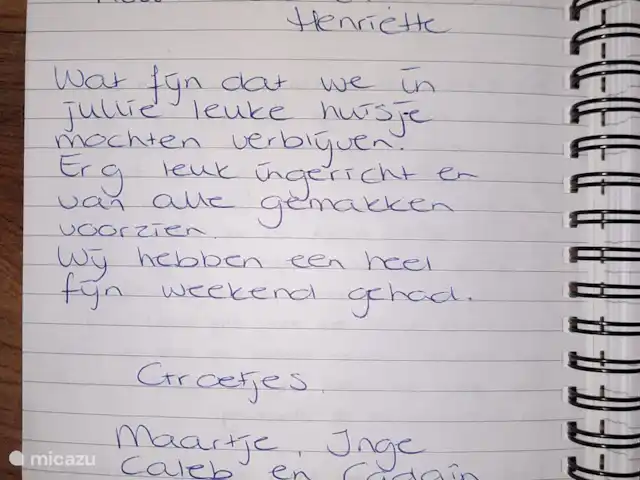 Henriëtte
Wat fijn dat we in
jullie leuke huisje
mochten verblijven.
Erg leuk ingericht en
van alle gemakken
voorzien.
Wij hebben een heel
fijn weekend gehad.
Groetjes.
Maartje, Inge
Caleb en
micazu